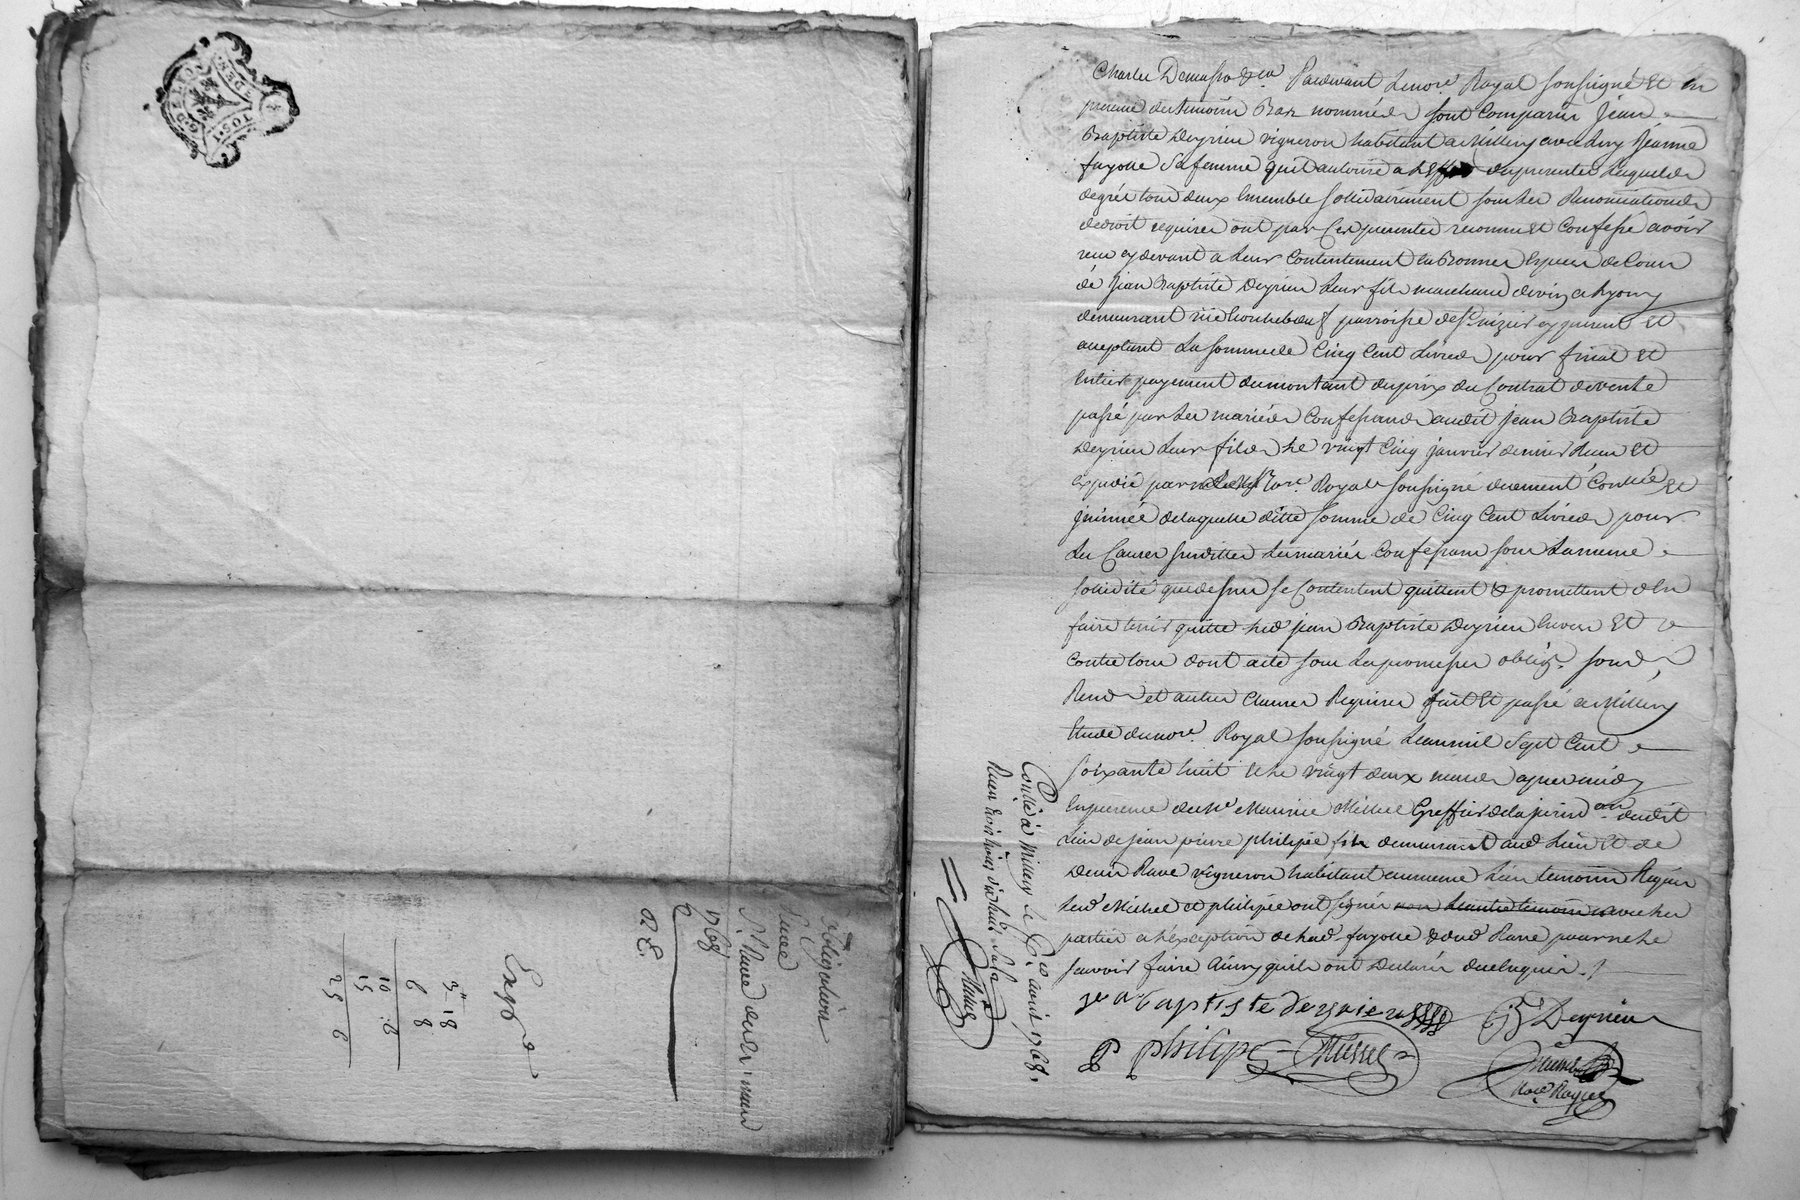 G. D. DE LYON
TOS. 1
Obligation
1768
Expé
3# 18
6 8
10: 6
15
25 6
Pardevant Lenore Royal soussigné Et En
presence des temoins Bas nommés sont comparus Jean
Baptiste Deyrieu vigneron habitant a Millery avec luy Jeanne
fayolle sa femme quil autorise a Leffet des presentes Lesquels
degré tous deux Ensemble solidairement sous les Renonciations
de droit requises ont par Ces presentes reconnu Et Confessé avoir
reçu cy devant a Leur Contentement En Bonnes Especes de Cours
de Jean Baptiste Deyrieu Leur fils marchand de vin a Lyon
demeurant rüe parroisse de St nizier cy present Et
acceptant La somme de Cinq Cent Livres pour final Et
Entier payement du montant du prix du Contrat de vente
passé par Les mariés Confessans audit Jean Baptiste
Deyrieu Leur fils Le vingt Cinq janvier dernier Reçu Et
expedié par Royal soussigné duement Contlé Et
de laquelle ditte somme de Cinq Cent Livres pour
Les Causes susdittes Les mariés Confessans sous La meme
solidité que dessus se Contentent quittent & promettent d'En
faire tenir quitte Led jean Baptiste Deyrieu Envers Et
Contre tous dont acte sous Les promesses oblig.
Renon et autres Clauses Requises fait Et passé a Millery
Etude du nore Royal soussigné L'an mil Sept Cent
soixante huit Et Le vingt deux mars apres midy
En presence de Me Maurice Michel Greffier de la jurisdon dudit
Lieu de jean pierre philipe fils demeurant aud Lieu Et de
Denis Rave vigneron habitant au meme Lieu temoins Requis
Led Michel et philipe ont signé avec Les
parties a L'exception de Lad fayolle & dud Rave pour ne Le
sçavoir faire Ainsy quils ont Declaré de Ce Enquis ./.
Contlé à Millery le avril 1768.
jean Baptiste deyrieu
B Deyrieu
P philipe
Michel
Nore Royal